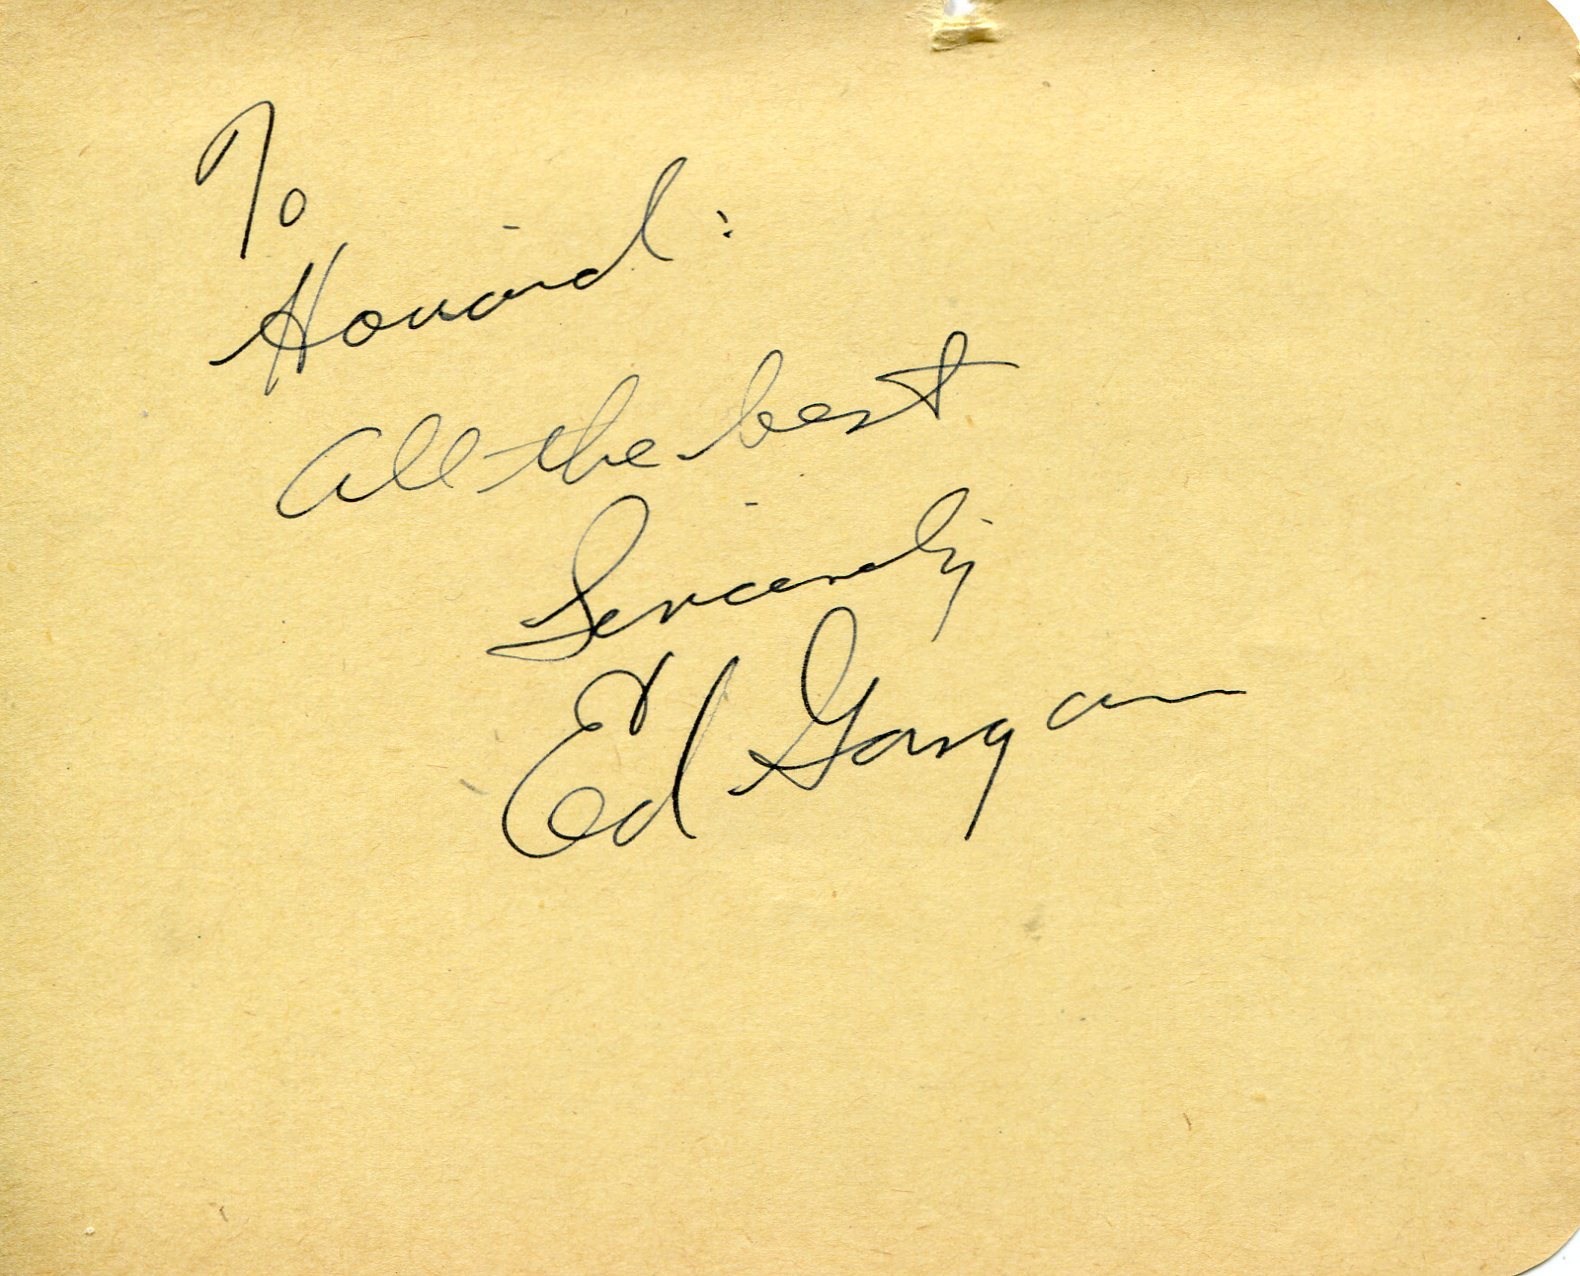 To
Howard:
All the best
Sincerely
Ed Gargan